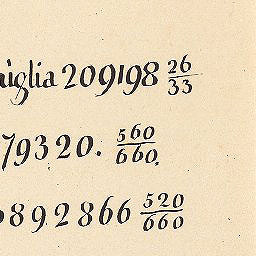 miglia 209198 26/33
79320. 560/660.
892866 520/660